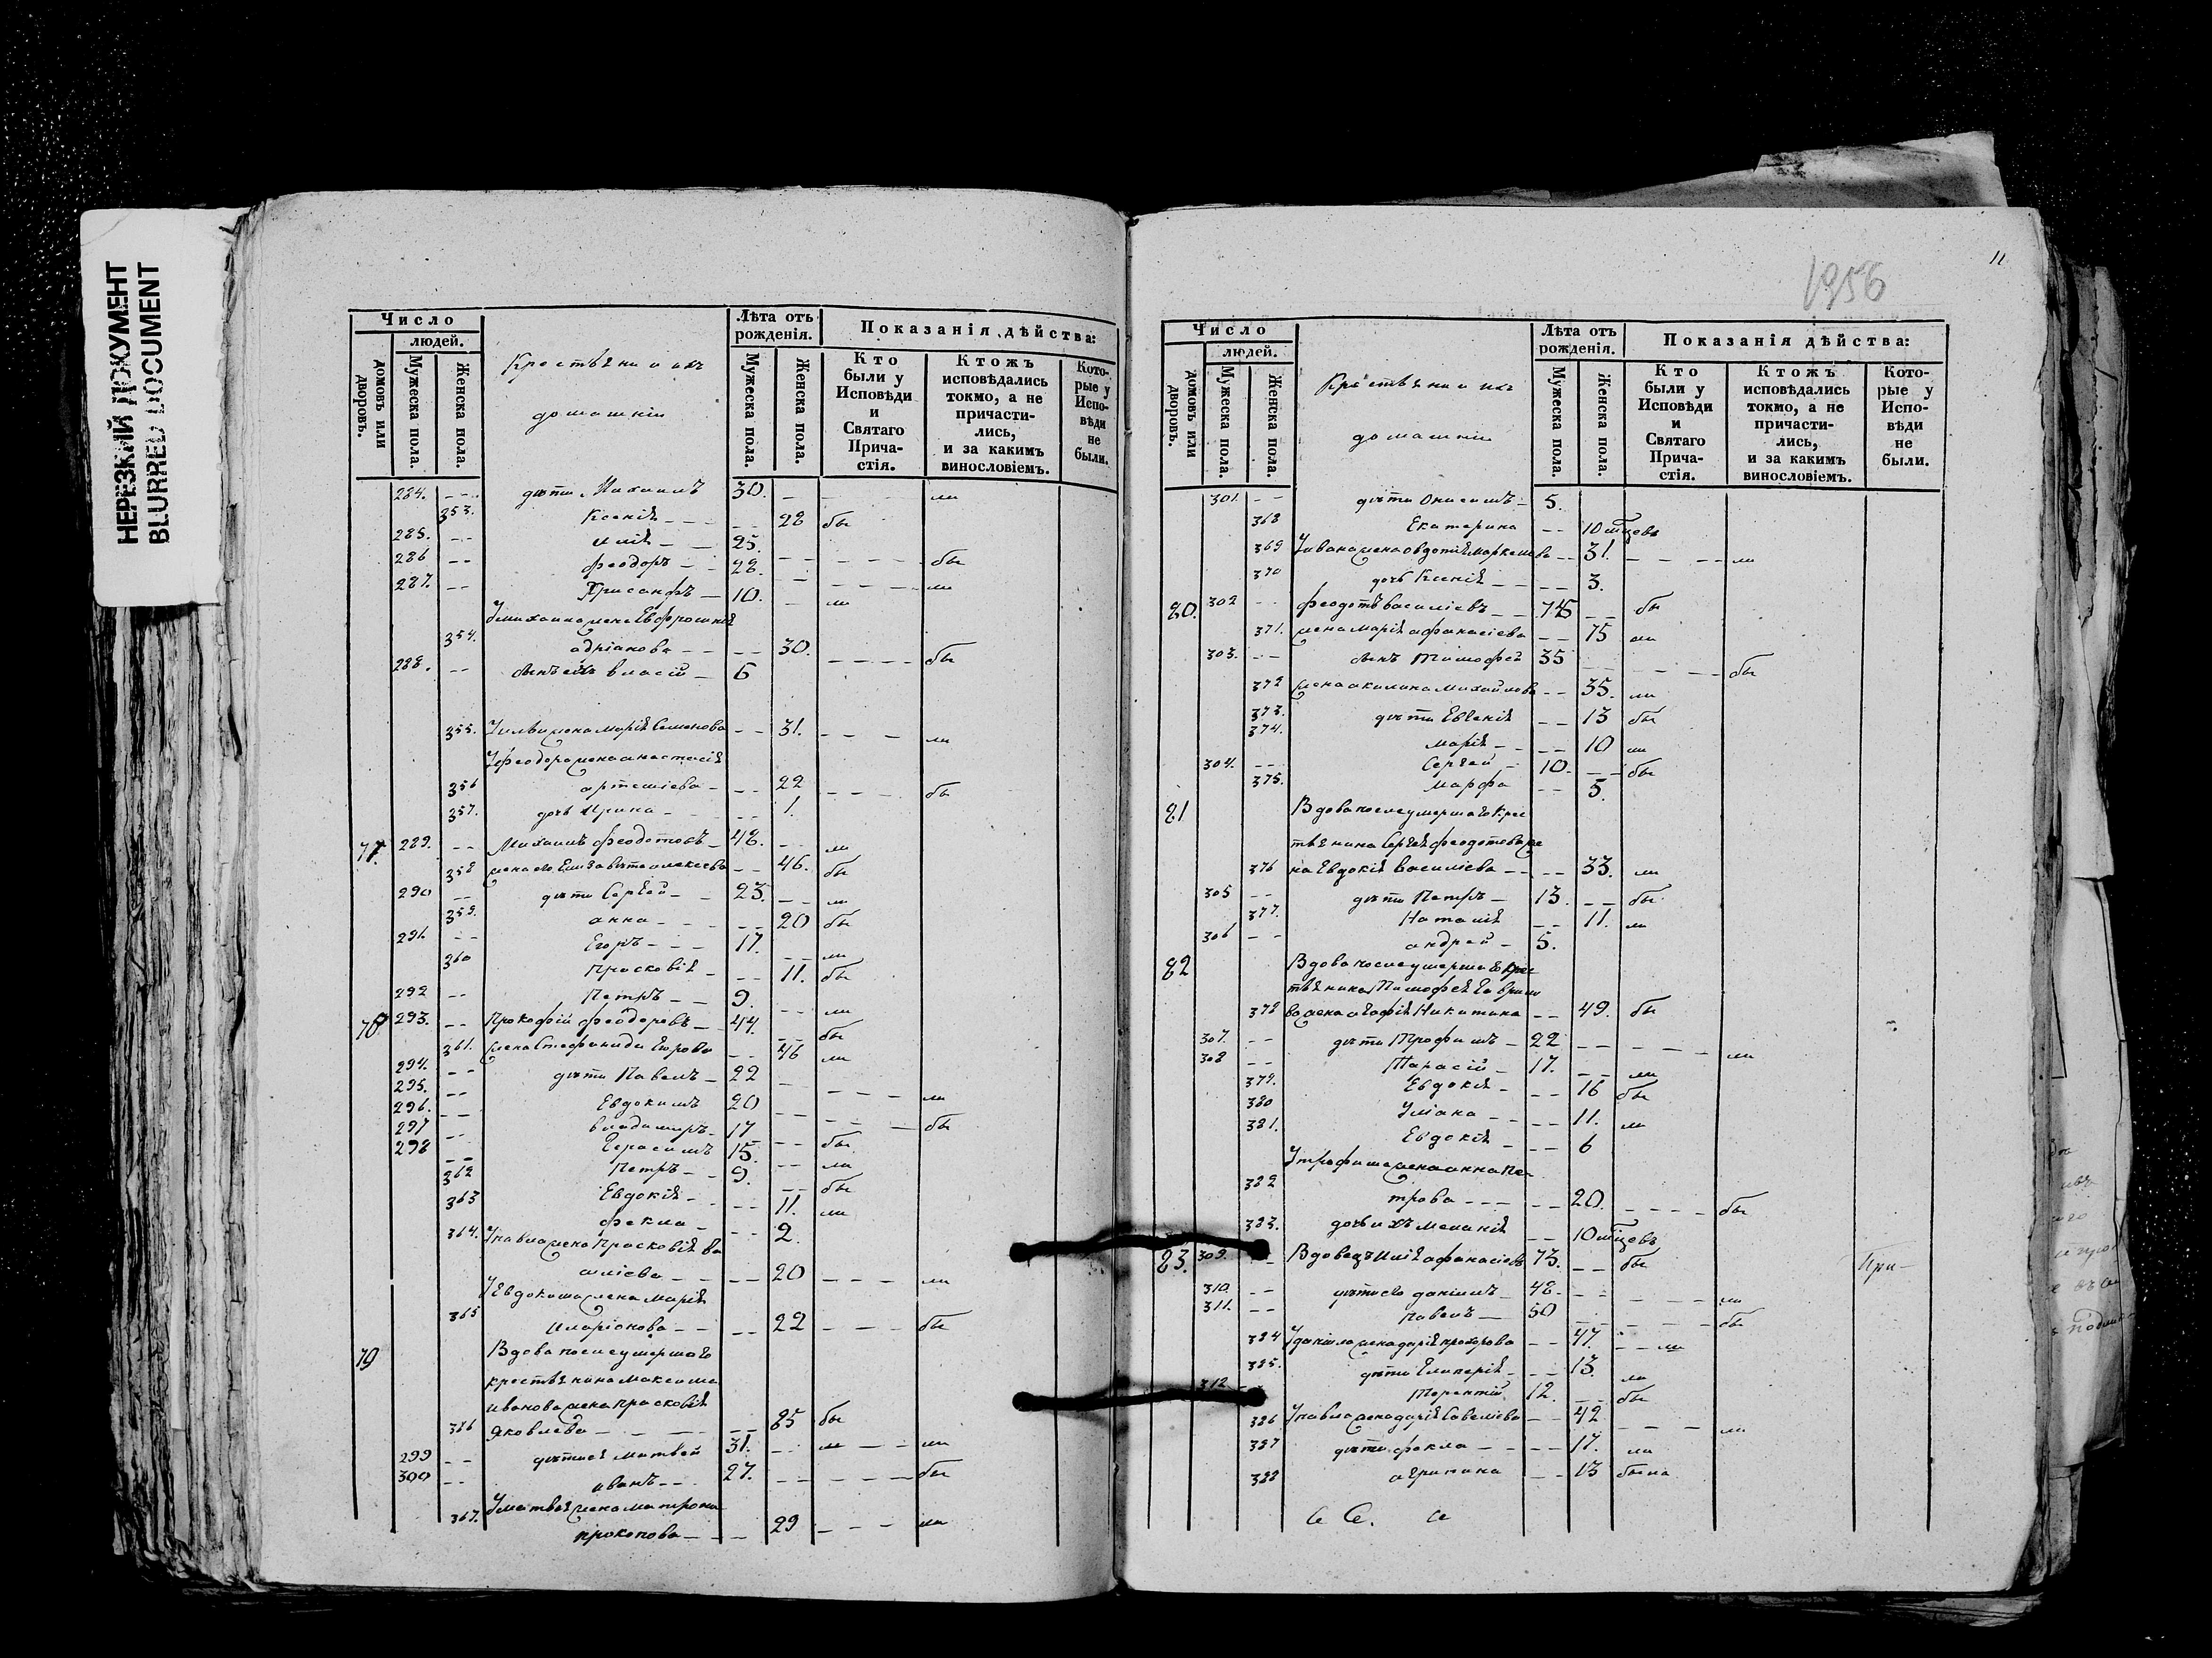 НЕРЕЗКИЙ ДОКУМЕНТ
BLURRED DOCUMENT
Число
людей.
домовъ или дворовъ.
Мужеска пола.
Женска пола.
Крестьяни и ихъ
домашніи
Лѣта отъ рожденія.
Мужеска пола.
Женска пола.
Показанія дѣйства:
Кто были у Исповѣди и Святаго Причастія.
Ктожъ исповѣдались токмо, а не причастились, и за какимъ винословіемъ.
Которые у Исповѣди не были.
284. дѣти Михаилъ 30. ли
353. Ксенія 28 бы
285. Илія 25.
286 Феодоръ 28. бы
287. Хрисанфъ 10. ли
У михаила жена Евфросинія
354. адріанова 30. бы
288. сынъ ихъ власій 6
355. У иліи жена Марія Семенова 31. ли
У феодора жена анастасія
356 артеміева 22 бы
357. дочь Ирина 1.
77. 289. Михаилъ Феодотовъ 48. ли
358 жена его Елизавѣта алексіева 46. бы
290 дѣти Сергей 23. ли
359. анна 20 бы
291. Егоръ 17. ли
360 Прасковія 11. бы
292 Петръ 9. ли
78. 293. Прокофій Феодоровъ 44. бы
361. жена Стефанида Егорова 46 ли
294. дѣти Павелъ 22 ли
295. Евдокимъ 20 бы
296. владимиръ 17 бы
297 Герасимъ 15. ли
298 Петръ 9. бы
362 Евдокія 11. ли
363 Фекла 2.
364. У павла жена Прасковія
20 ли
У Евдокима жена Марія
365 Иларіонова 22 бы
79 Вдова после умершаго
крестьянина максима
иванова жена прасковія
366 Яковлева 85 бы
299 дѣти ея матвей 31. ли
300 иванъ 27. бы
У матвея жена матрона
367. прокопова 29 ли
1956
11
Число
людей.
домовъ или дворовъ.
Мужеска пола.
Женска пола.
Крестьяни и ихъ
домашніи
Лѣта отъ рожденія.
Мужеска пола.
Женска пола.
Показанія дѣйства:
Кто были у Исповѣди и Святаго Причастія.
Ктожъ исповѣдались токмо, а не причастились, и за какимъ винословіемъ.
Которые у Исповѣди не были.
301. дѣти Онисимъ 5.
368 Екатерина 10 мѣсцовъ
369 У ивана жена овдотія маркелова 31. ли
370 дочь Ксенія 3.
80. 302 феодотъ василіевъ бы
371. жена марія афанасіева 75 ли
303. сынъ Тимофей 35 бы
372 жена акилина михайлова 35. ли
373. дѣти Евгенія 13 бы
374. марія 10 ли
304. Сергей 10. бы
375. марфа 5.
81 Вдова после умершаго крес
тьянина Сергея феодотова же
376 на Евдокія Василіева 33. ли
305 дѣти Петръ 13. бы
377. Наталія 11. ли
306 андрей 5.
82 Вдова после умершаго крес
тьянина Тимофея Гаврило
378 ва жена агафія Никитина 49. бы
307. дѣти Трофимъ 22 ли
308 Тарасій 17. ли
379. Евдокія 16 бы
380 Уліана 11. ли
381. Евдокія 6
У трофима жена анна Пе
382 трова 20. бы
383. дочь ихъ меланія 10 мѣсцовъ
83. 309. Вдовецъ Илія афанасіевъ 73. бы При-
310. дѣти его даніилъ 48. ли
311. Павелъ 50 бы
384 У даніила жена дарія прохорова 47. ли
385. дѣти Гликерія 13. ли
312 Терентій 12. бы
386 У павла жена дарія Савеліева 42 ли
387 дѣти фекла 17. ли
388 агрипина 13 были